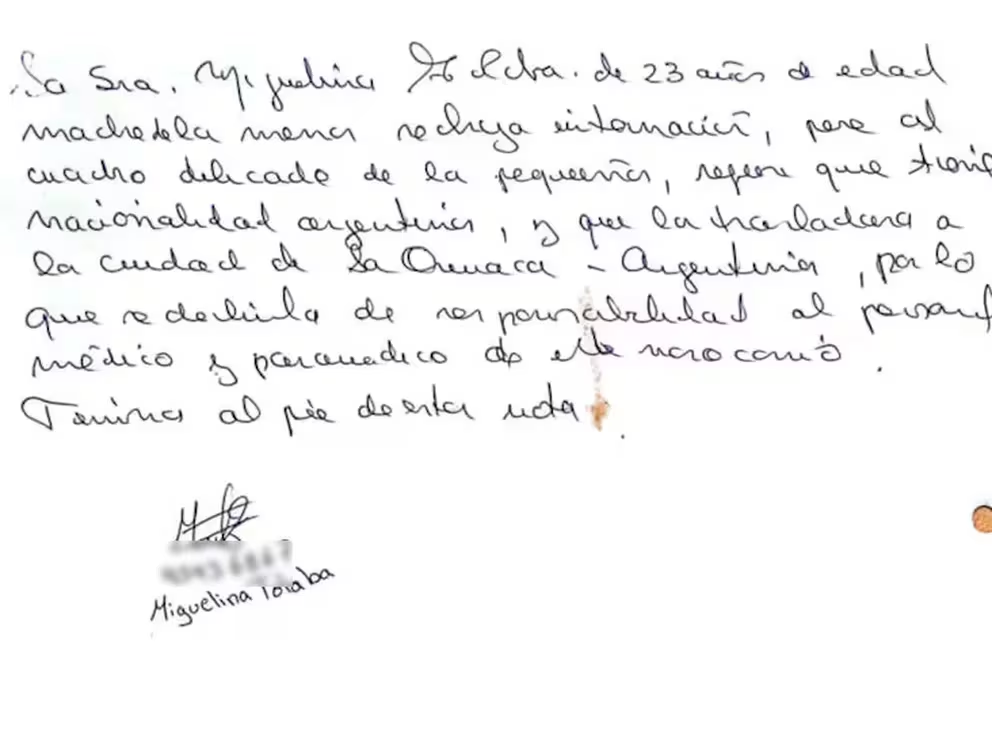 La Sra. Miguelina de 23 años de edad
madre de la menor rechaza internación, pese al
cuadro delicado de la pequeña, refiere que tiene
nacionalidad argentina, y que la trasladara a
la ciudad de La Quiaca - Argentina, por lo
que se deslinda de responsabilidad al personal
médico y paramedico de este nosocomio.
Firma al pie de esta nota.
Miguelina Toraba